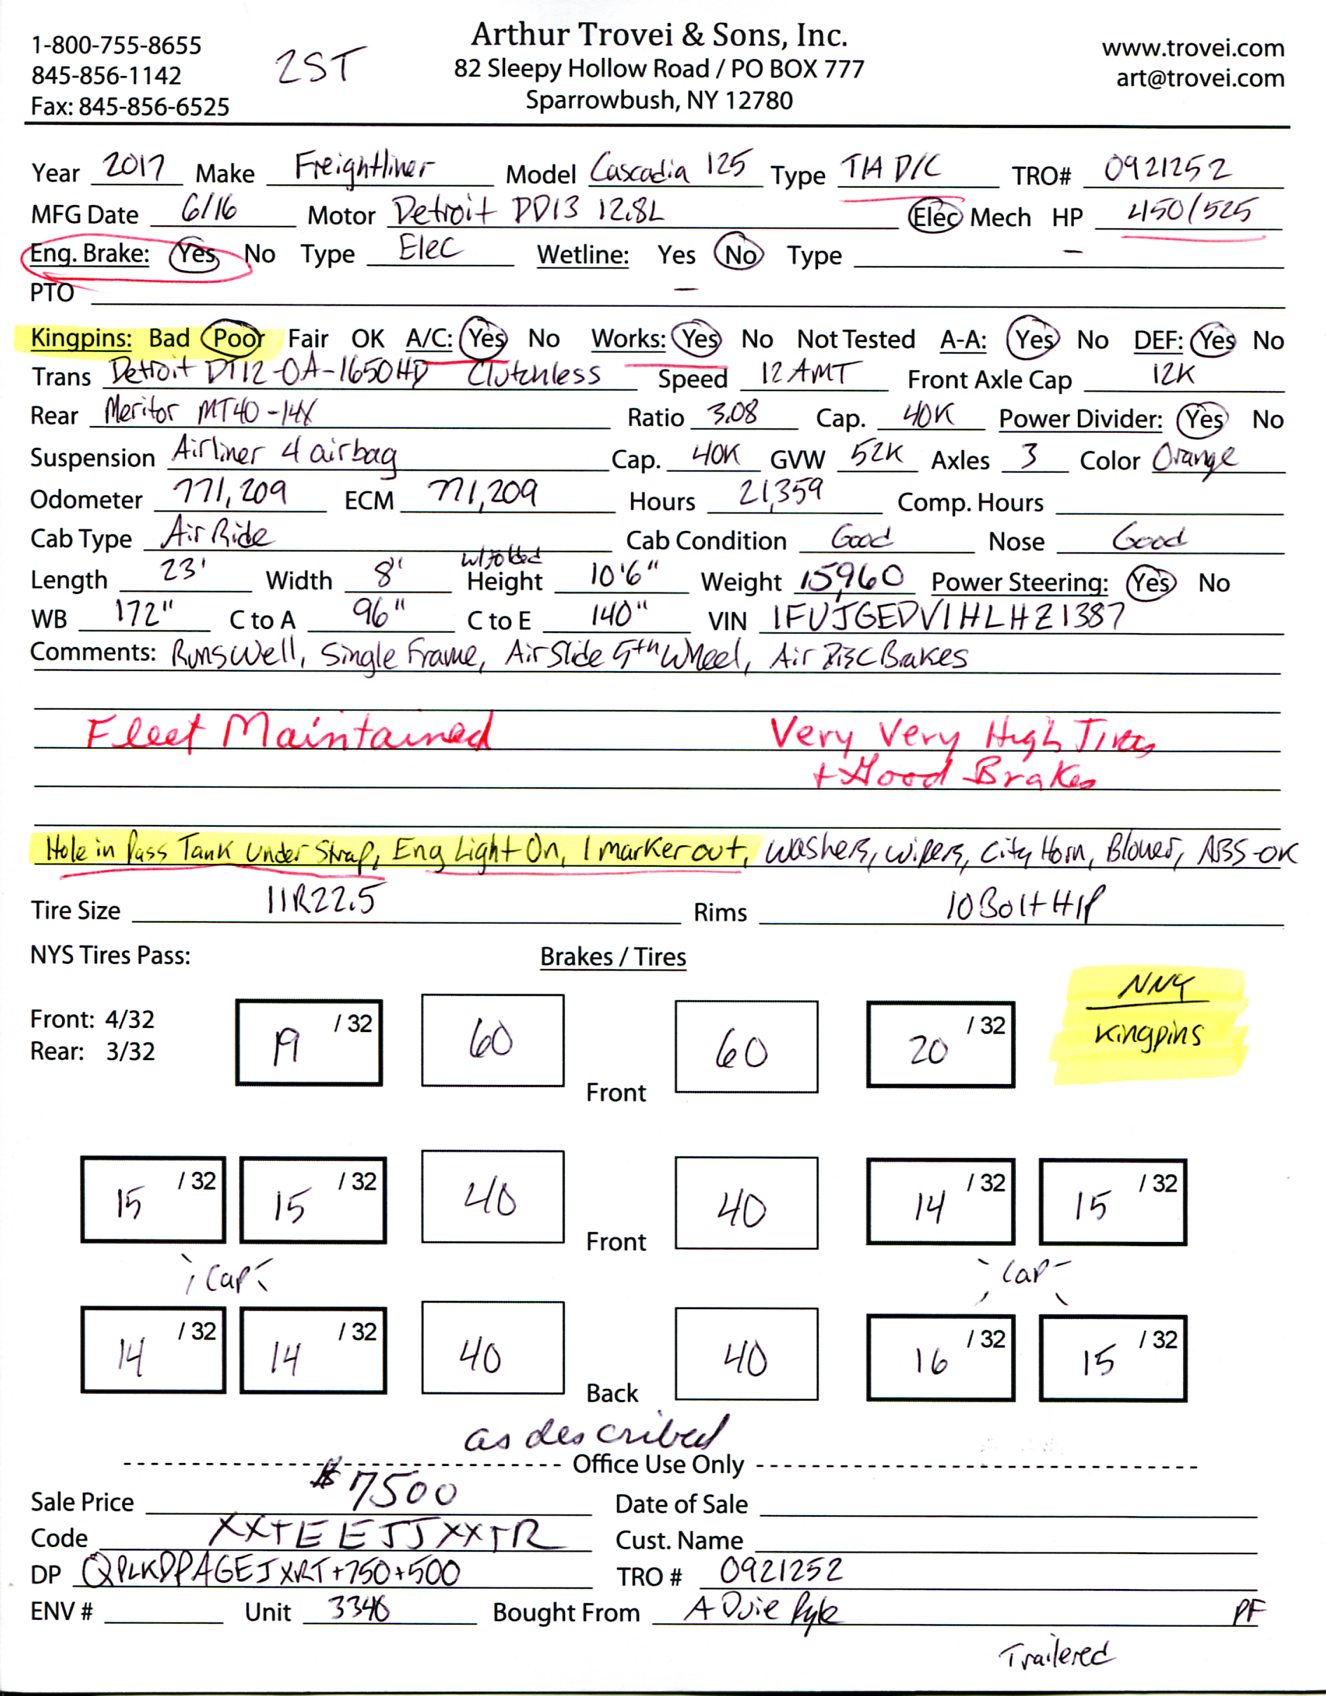 Arthur Trovei & Sons, Inc.
82 Sleepy Hollow Road / PO BOX 777
Sparrowbush, NY 12780
1-800-755-8655
845-856-1142
Fax: 845-856-6525
2ST
www.trovei.com
art@trovei.com
Year 2017 Make Freightliner Model Cascadia 125 Type T/A D/C TRO# 0921252
MFG Date 6/16 Motor Detroit DD13 12.8L Elec Mech HP 450/525
Eng. Brake: Yes No Type Elec Wetline: Yes No Type —
PTO —
Kingpins: Bad Poor Fair OK A/C: Yes No Works: Yes No Not Tested A-A: Yes No DEF: Yes No
Trans Detroit DT12-OA-1650HD Clutchless Speed 12 AMT Front Axle Cap 12K
Rear Meritor MT40-14X Ratio 3.08 Cap. 40K Power Divider: Yes No
Suspension Airliner 4 airbag Cap. 40K GVW 52K Axles 3 Color Orange
Odometer 771,209 ECM 771,209 Hours 21,359 Comp. Hours
Cab Type Air Ride Cab Condition Good Nose Good
Length 23' Width 8' w/folded Height 10'6" Weight 15,960 Power Steering: Yes No
WB 172" C to A 96" C to E 140" VIN 1FUJGEDV1HLHZ1387
Comments: Runs Well, Single Frame, Air Slide 5th Wheel, Air Disc Brakes
Fleet Maintained Very Very High Tires
+ Good Brakes
Hole in Pass Tank Under Strap, Eng Light On, 1 marker out, Washers, Wipers, City Horn, Blower, ABS-OK
Tire Size 11R22.5 Rims 10 Bolt HP
NYS Tires Pass: Brakes / Tires
Front: 4/32
Rear: 3/32
19 /32 60 Front 60 20 /32
NNY
Kingpins
15 /32 15 /32 40 Front 40 14 /32 15 /32
Cap Cap
14 /32 14 /32 40 Back 40 16 /32 15 /32
as described
Office Use Only
Sale Price $7500 Date of Sale
Code XXTEEJJXXTR Cust. Name
DP QPLKDPAGEJXRT+750+500 TRO # 0921252
ENV # Unit 3346 Bought From A Duie Pyle PF
Trailered